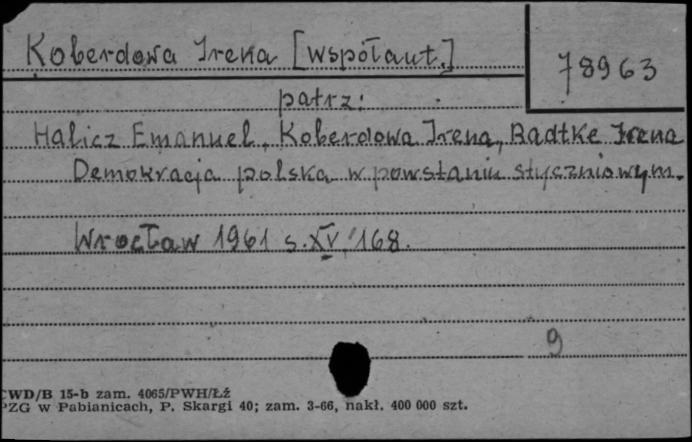 Koberdowa Irena [współaut.]
78963
patrz:
Halicz Emanuel, Koberdowa Irena, Radtke Irena
Demokracja polska w powstaniu styczniowym.
Wrocław 1961 s. XV, 168.
9
CWD/B 15-b zam. 4065/PWH/Łź
PZG w Pabianicach, P. Skargi 40; zam. 3-66, nakł. 400 000 szt.